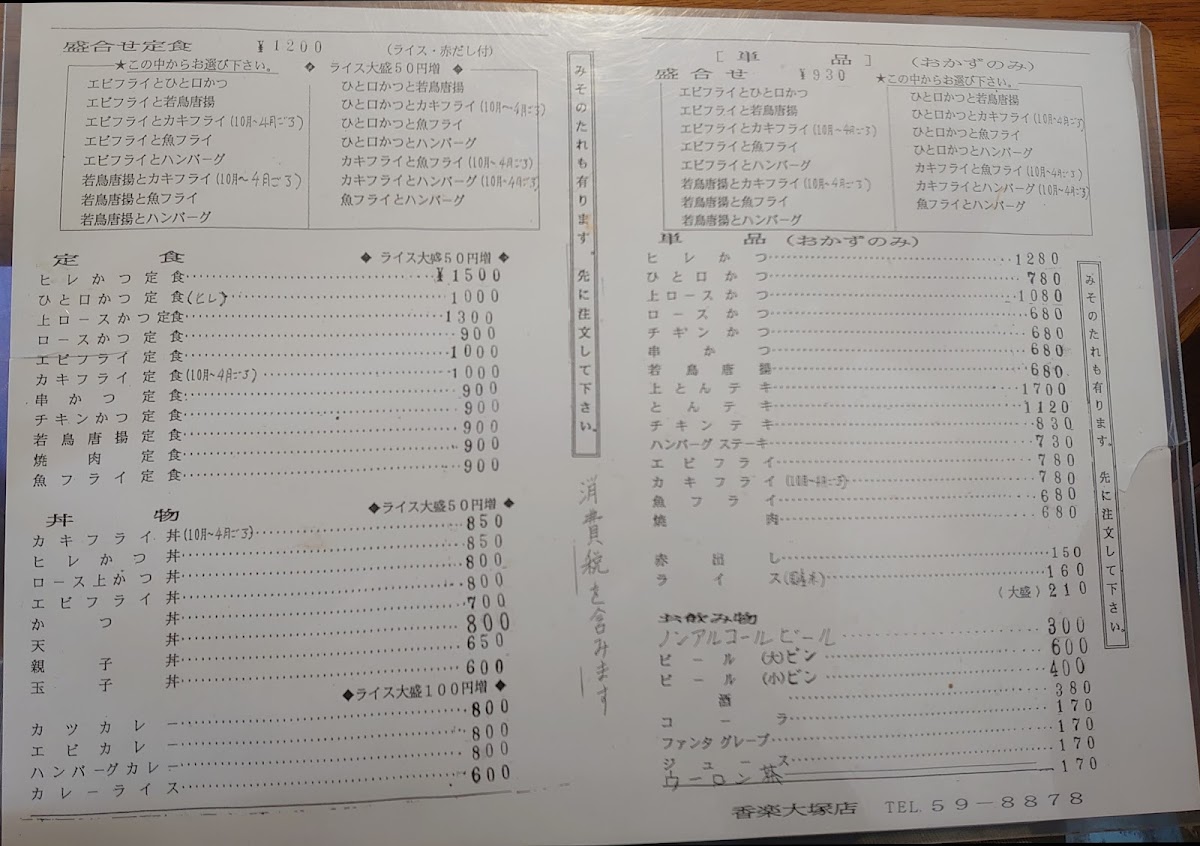 盛合せ定食 ￥1200 (ライス・赤だし付)
★この中からお選び下さい。 ◆ ライス大盛50円増 ◆
エビフライとひと口かつ
エビフライと若鳥唐揚
エビフライとカキフライ(10月～4月ごろ)
エビフライと魚フライ
エビフライとハンバーグ
若鳥唐揚とカキフライ(10月～4月ごろ)
若鳥唐揚と魚フライ
若鳥唐揚とハンバーグ
ひと口かつと若鳥唐揚
ひと口かつとカキフライ(10月～4月ごろ)
ひと口かつと魚フライ
ひと口かつとハンバーグ
カキフライと魚フライ(10月～4月ごろ)
カキフライとハンバーグ(10月～4月ごろ)
魚フライとハンバーグ
定食 ◆ ライス大盛50円増 ◆
ヒレかつ定食 ¥1500
ひと口かつ定食(ヒレ) 1000
上ロースかつ定食 1300
ロースかつ定食 900
エビフライ定食 1000
カキフライ定食(10月～4月ごろ) 1000
串かつ定食 900
チキンかつ定食 900
若鳥唐揚定食 900
焼肉定食 900
魚フライ定食 900
丼物 ◆ライス大盛50円増 ◆
カキフライ丼(10月～4月ごろ) 850
ヒレかつ丼 850
ロース上かつ丼 800
エビフライ丼 800
かつ丼 700
天丼 800
親子丼 650
玉子丼 600
◆ライス大盛100円増 ◆
カツカレー 800
エビカレー 800
ハンバーグカレー 800
カレーライス 600
みそのたれも有ります。先に注文して下さい。
消費税を含みます
[単品] (おかずのみ)
盛合せ ￥930 ★この中からお選び下さい。
エビフライとひと口かつ
エビフライと若鳥唐揚
エビフライとカキフライ(10月～4月ごろ)
エビフライと魚フライ
エビフライとハンバーグ
若鳥唐揚とカキフライ(10月～4月ごろ)
若鳥唐揚と魚フライ
若鳥唐揚とハンバーグ
ひと口かつと若鳥唐揚
ひと口かつとカキフライ(10月～4月ごろ)
ひと口かつと魚フライ
ひと口かつとハンバーグ
カキフライと魚フライ(10月～4月ごろ)
カキフライとハンバーグ(10月～4月ごろ)
魚フライとハンバーグ
単品 (おかずのみ)
ヒレかつ 1280
ひと口かつ 780
上ロースかつ 1080
ロースかつ 680
チキンかつ 680
串かつ 680
若鳥唐揚 680
上とんテキ 1700
とんテキ 1120
チキンテキ 830
ハンバーグステーキ 730
エビフライ 780
カキフライ(10月～4月ごろ) 780
魚フライ 680
焼肉 680
赤出し 150
ライス 160
(大盛) 210
みそのたれも有ります。先に注文して下さい。
お飲み物
ノンアルコールビール 300
ビール(大)ビン 600
ビール(小)ビン 400
酒 380
コーラ 170
ファンタグレープ 170
ジュース 170
ウーロン茶 170
香楽大塚店 TEL.59-8878